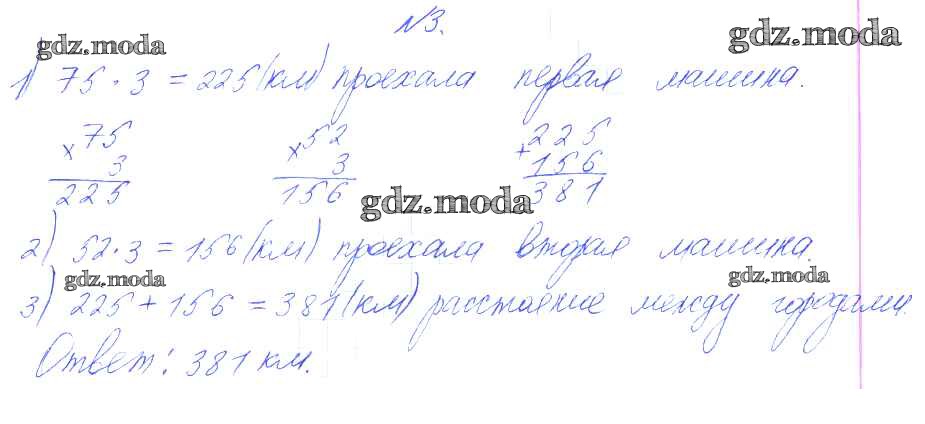 №3.
gdz.moda
gdz.moda
1) 75 · 3 = 225 (км) проехала первая машина.
75
× 3
225
52
× 3
156
225
+ 156
381
gdz.moda
2) 52 · 3 = 156 (км) проехала вторая машина.
gdz.moda
gdz.moda
3) 225 + 156 = 381 (км) расстояние между городами.
Ответ: 381 км.